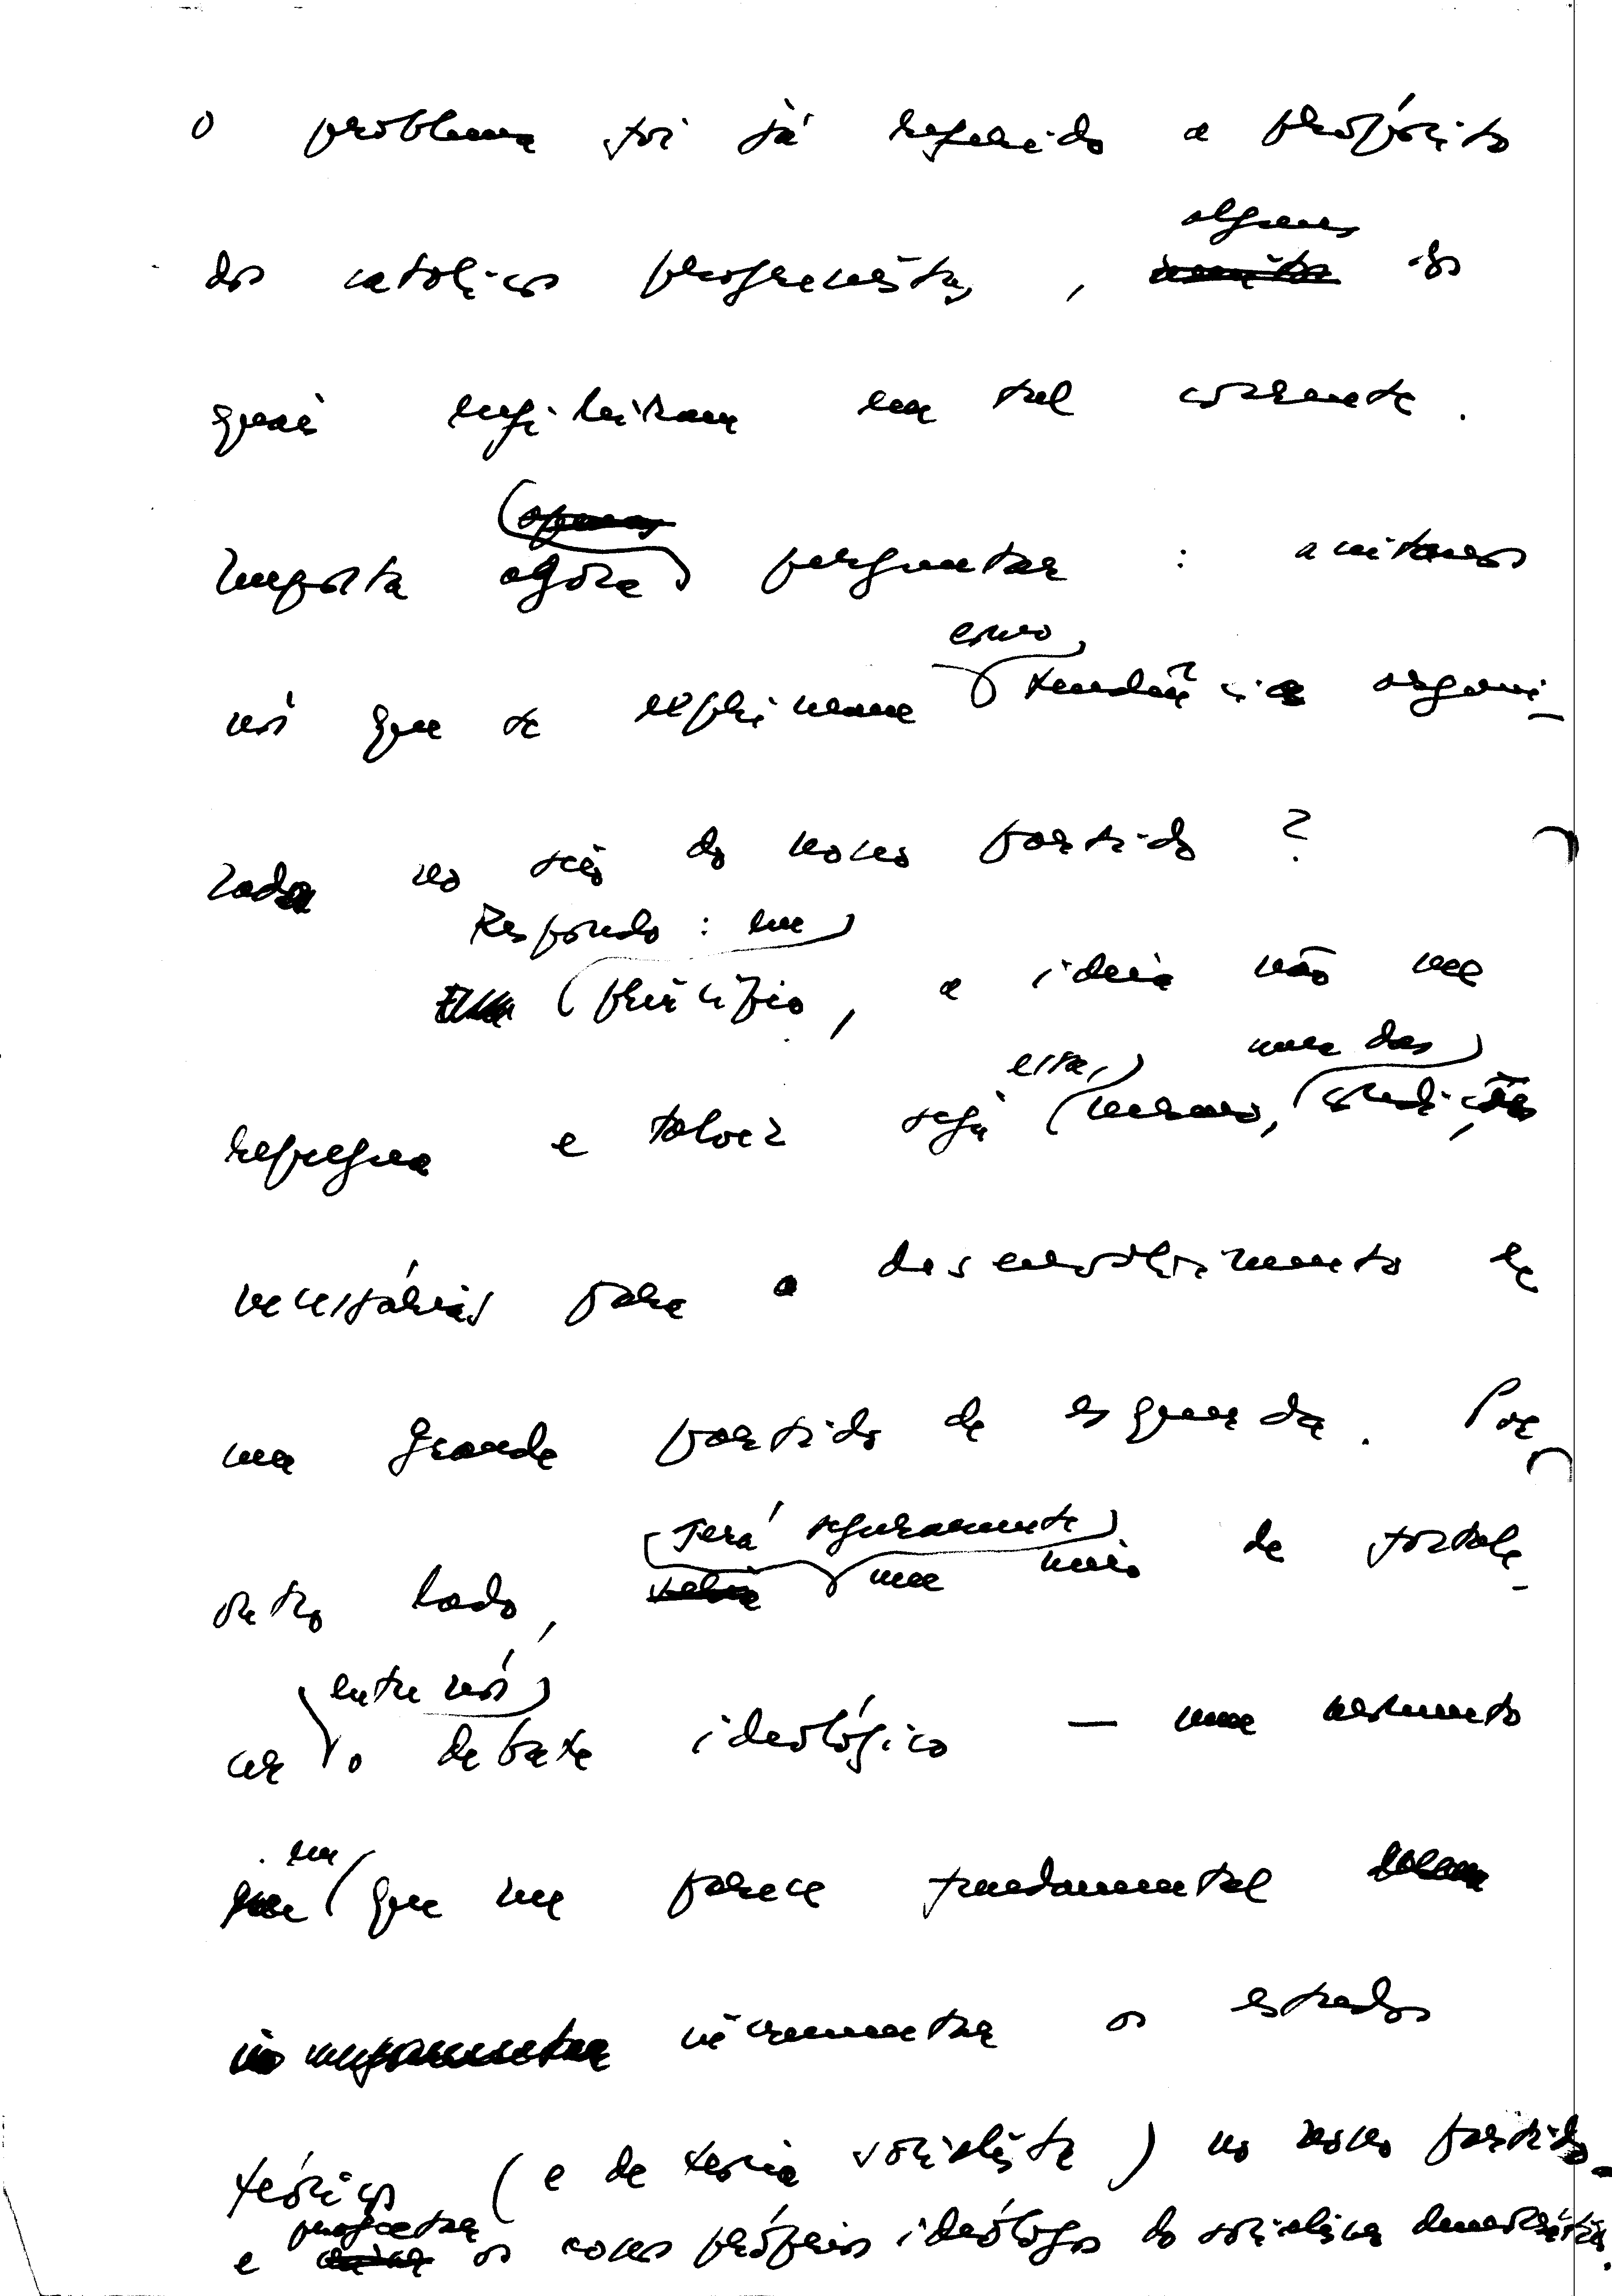 O problema foi já referido a propósito
alguns
dos católicos progressistas, muitos dos
quais militaram em tal corrente.
(apenas
Importa agora) perguntar : aceitamos
como
nós que se exprimam tendência organi-
zada no seio do nosso partido ?
Respondo : em
Em princípio, a ideia não me
essa, uma das
repugna e talvez seja mesmo, condições
necessárias para o desenvolvimento de
um grande partido de esquerda. Por
será seguramente
outro lado, seria um meio de fortale-
entre nós
cer o debate ideológico — um momento
em
que que me parece fundamental
incrementar os estudos
teóricos (e de teoria socialista) no nosso partido
projectar
e os nossos próprios ideólogos do socialismo democrático.